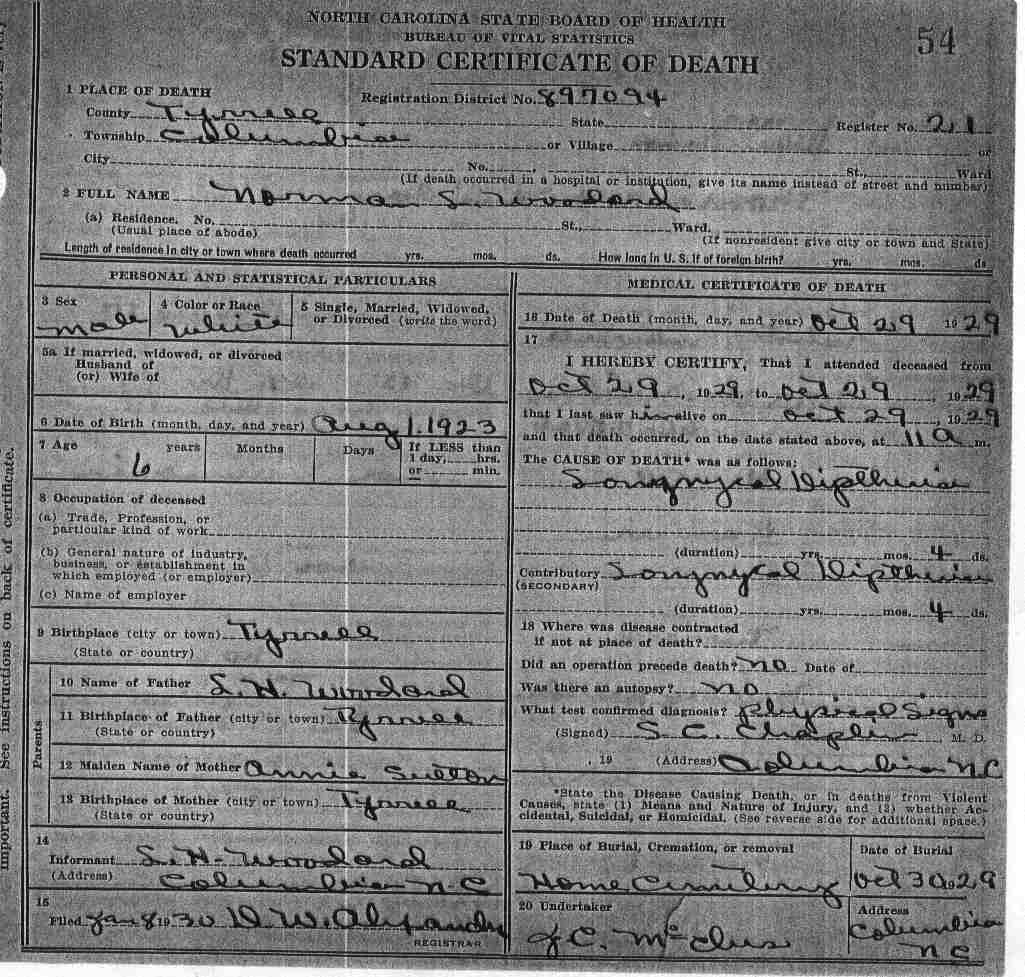 NORTH CAROLINA STATE BOARD OF HEALTH
BUREAU OF VITAL STATISTICS
54
STANDARD CERTIFICATE OF DEATH
1 PLACE OF DEATH
Registration District No. 897094
County Tyrrell State Register No. 21
Township Columbia or Village or
City No. St., Ward
(If death occurred in a hospital or institution, give its name instead of street and number)
2 FULL NAME Norman S. Woodard
(a) Residence. No. St., Ward.
(Usual place of abode) (If nonresident give city or town and State)
Length of residence in city or town where death occurred yrs. mos. ds. How long in U. S. if of foreign birth? yrs. mos. ds
PERSONAL AND STATISTICAL PARTICULARS
3 Sex
male
4 Color or Race
white
5 Single, Married, Widowed,
or Divorced (write the word)
5a If married, widowed, or divorced
Husband of
(or) Wife of
6 Date of Birth (month, day, and year) Aug 1. 1923
7 Age years Months Days If LESS than
1 day, hrs.
or min.
6
8 Occupation of deceased
(a) Trade, Profession, or
particular kind of work
(b) General nature of industry,
business, or establishment in
which employed (or employer)
(c) Name of employer
9 Birthplace (city or town) Tyrrell
(State or country)
Parents
10 Name of Father S. H. Woodard
11 Birthplace of Father (city or town) Tyrrell
(State or country)
12 Maiden Name of Mother Annie Sutton
13 Birthplace of Mother (city or town) Tyrrell
(State or country)
14
Informant S. H. Woodard
(Address) Columbia N.C
15
Filed Jan 8 1930 W. Alexander
REGISTRAR
MEDICAL CERTIFICATE OF DEATH
16 Date of Death (month, day, and year) Oct 29 1929
17
I HEREBY CERTIFY, That I attended deceased from
Oct 29, 1929, to Oct 29, 1929
that I last saw him alive on Oct 29, 1929
and that death occurred, on the date stated above, at 11 a m.
The CAUSE OF DEATH* was as follows:
Diptheria
(duration) yrs. mos. 4 ds.
Contributory Diptheria
(SECONDARY)
(duration) yrs. mos. 4 ds.
18 Where was disease contracted
if not at place of death?
Did an operation precede death? no Date of
Was there an autopsy? no
What test confirmed diagnosis? Physical Signs
(Signed) S. C. Chaplin, M. D.
, 19 (Address) Columbia N.C
*State the Disease Causing Death, or in deaths from Violent
Causes, state (1) Means and Nature of Injury, and (2) whether Ac-
cidental, Suicidal, or Homicidal. (See reverse side for additional space.)
19 Place of Burial, Cremation, or removal
Home Cemetery
Date of Burial
Oct 30 1929
20 Undertaker
J C. McClees
Address
Columbia
N C
important. See instructions on back of certificate.